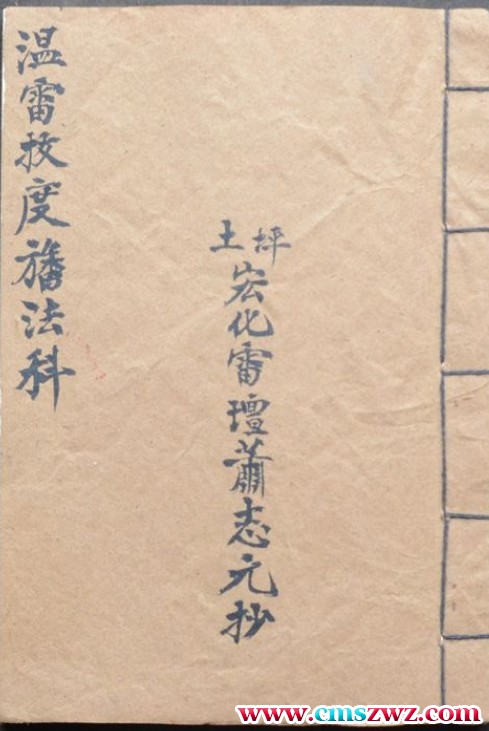 温雷拔度旛法科
土坪
宏化雷壇蕭志元抄
www.cmszwz.com